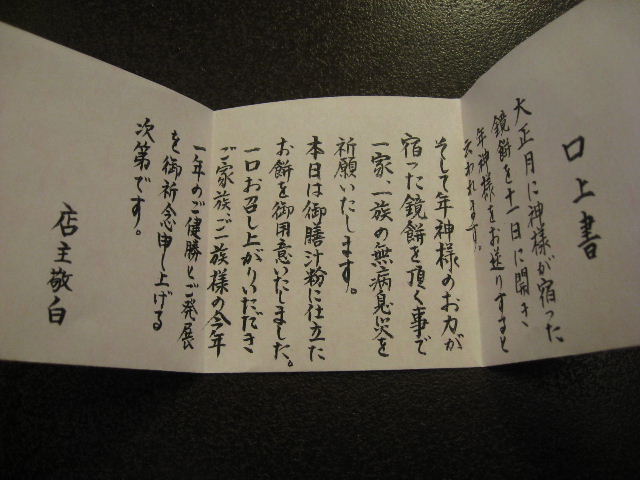 口上書
大正月に神様が宿った
鏡餅を十一日に開き
年神様をお送りすると
云われます。
そして年神様のお力が
宿った鏡餅を頂く事で
一家、一族の無病息災を
祈願いたします。
本日は御膳汁粉に仕立た
お餅を御用意いたしました。
一口お召し上がりいただき
ご家族、ご一族様の今年
一年のご健勝とご発展
を御祈念申し上げる
次第です。
店主敬白